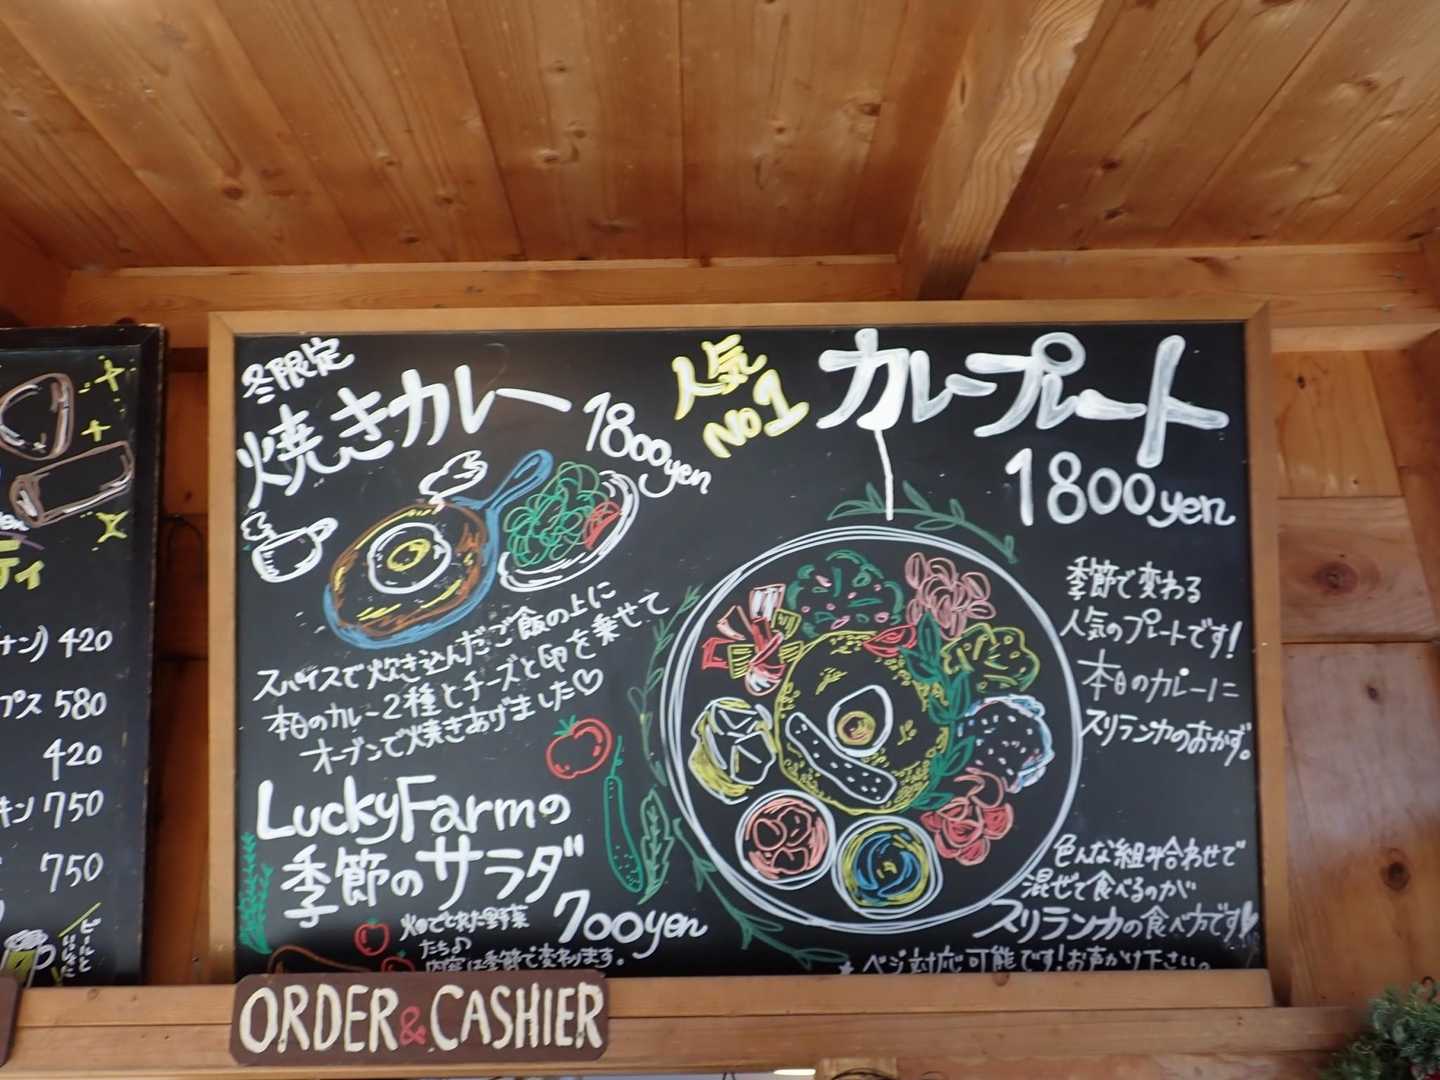 冬限定
焼きカレー
1800yen
スパイスで炊き込んだご飯の上に
本日のカレー2種とチーズと卵を乗せて
オーブンで焼きあげました♡
LuckyFarmの
季節のサラダ
700yen
畑でとれた野菜
たち♪
内容は季節で変わります。
人気
No1
カレープレート
1800yen
季節で変わる
人気のプレートです!
本日のカレーに
スリランカのおかず。
色んな組み合わせで
混ぜて食べるのが
スリランカの食べ方です
★ベジ対応可能です!お声かけ下さい。
ティ
ナン) 420
プス 580
420
キン 750
750
ビールと
いっしょに
ORDER & CASHIER